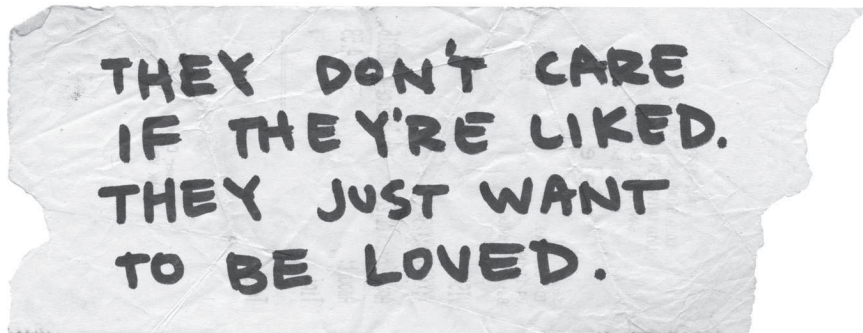 THEY DON'T CARE
IF THEY'RE LIKED.
THEY JUST WANT
TO BE LOVED.